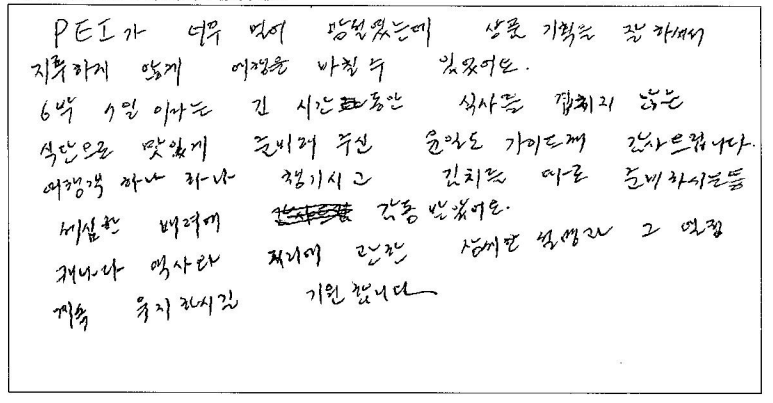 PEI가 너무 멀어 망설였는데 상품 기획을 잘 하셔서
지루하지 않게 여행을 마칠 수 있었어요.
6박 7일 이라는 긴 시간 동안 식사를 겹치지 않는
식단으로 맛있게 준비해 주신 윤일도 가이드께 감사드립니다.
여행객 하나 하나 챙기시고 김치를 따로 준비하시는 등
세심한 배려에 감동 받았어요.
캐나다 역사와 지리에 관한 상세한 설명과 그 열정
계속 유지하시길 기원합니다